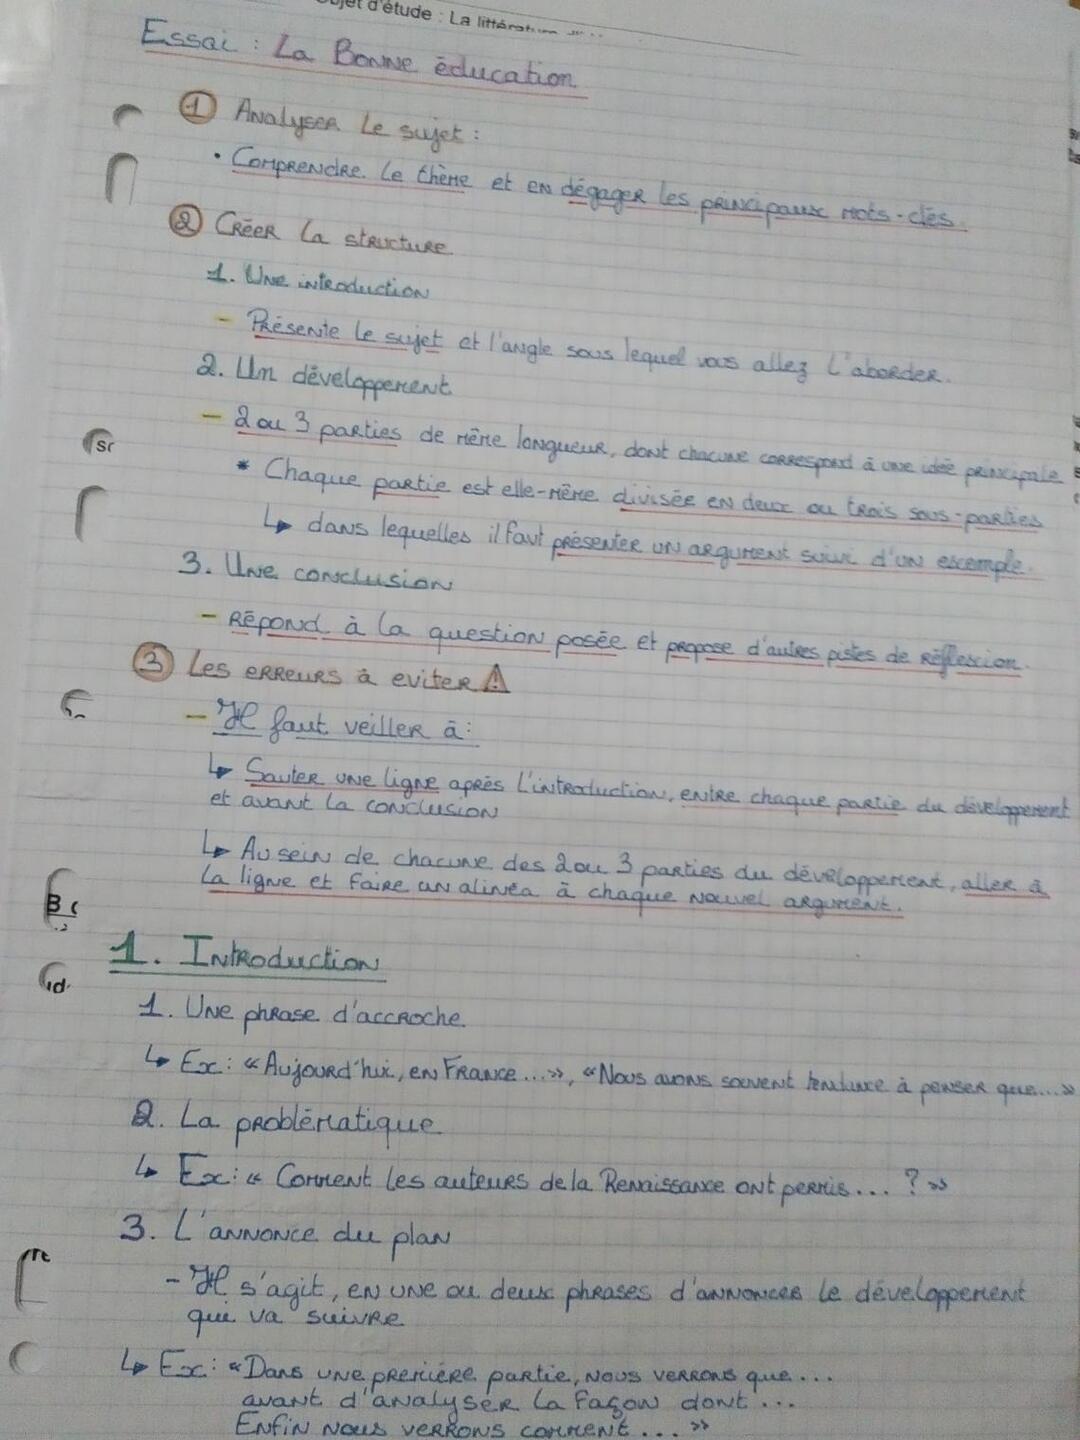 Objet d'étude : La littérature
Essai : La Bonne éducation
① Analyser le sujet :
• Comprendre le thème et en dégager les principaux mots-clés.
② Créer la structure
1. Une introduction
- Présente le sujet et l'angle sous lequel vous allez l'aborder.
2. Un développement
- 2 ou 3 parties de même longueur, dont chacune correspond à une idée principale
* Chaque partie est elle-même divisée en deux ou trois sous-parties
↳ dans lequelles il faut présenter un argument suivi d'un exemple.
3. Une conclusion
- Répond à la question posée et propose d'autres pistes de réflexion.
③ Les erreurs à eviter ⚠
- Il faut veiller à :
↳ Sauter une ligne après l'introduction, entre chaque partie du développement
et avant la conclusion
↳ Au sein de chacune des 2 ou 3 parties du développement, aller à
la ligne et faire un alinéa à chaque nouvel argument.
1. Introduction
1. Une phrase d'accroche
↳ Ex : « Aujourd'hui, en France ... », « Nous avons souvent tendance à penser que.... »
2. La problématique
↳ Ex : « Comment les auteurs de la Renaissance ont permis ... ? »
3. L'annonce du plan
- Il s'agit, en une ou deux phrases d'annoncer le développement
qui va suivre
↳ Ex : « Dans une première partie, nous verrons que ...
avant d'analyser la façon dont ...
Enfin nous verrons comment ... »